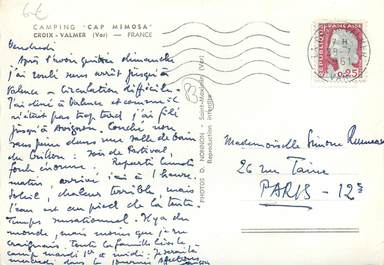 6€
CAMPING "CAP MIMOSA"
CROIX - VALMER (Var) — FRANCE
Vendredi
Après t'avoir quittée dimanche
j'ai roulé sans arrêt jusqu'à
Valence - circulation difficile.
J'ai dîné à Valence et comme il
n'était pas trop tard j'ai filé
jusqu'à Avignon. Couché non
sans peine dans une salle de bain
du Crillon : soir de Festival.
foule énorme. Reparti lundi
matin, arrivé ici à 1 heure.
Soleil, chaleur terrible mais
l'eau est au pied de la tente
Temps sensationnel. Il y a du
monde, mais moins que je ne
craignais. Toute la famille lève le
camp mardi 1er à midi. Je serai là
mercredi dans la journée
83
PHOTOS D. NONNON - Saint-Mandrier (Var)
Reproduction interdite
0,25
Mademoiselle Simone
26 rue Taine
PARIS - 12e